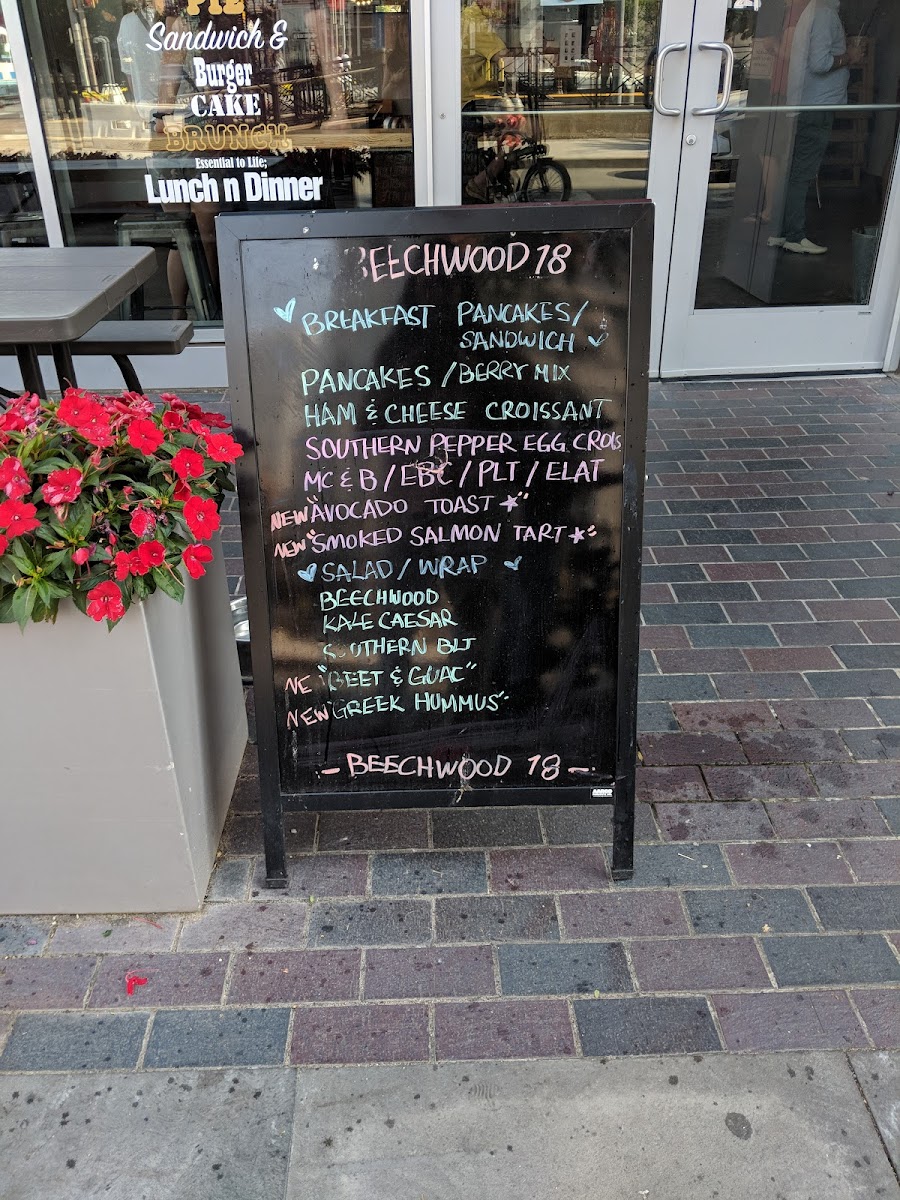 PIE
Sandwich &
Burger
CAKE
BRUNCH
Essential to Life;
Lunch n Dinner
BEECHWOOD 18
BREAKFAST PANCAKES/
SANDWICH
PANCAKES / BERRY MIX
HAM & CHEESE CROISSANT
SOUTHERN PEPPER EGG CROIS
MC & B / EBC / PLT / ELAT
NEW "AVOCADO TOAST ★"
NEW "SMOKED SALMON TART ★"
SALAD / WRAP
BEECHWOOD
KALE CAESAR
SOUTHERN BLT
NE "BEET & GUAC"
NEW "GREEK HUMMUS"
- BEECHWOOD 18 -